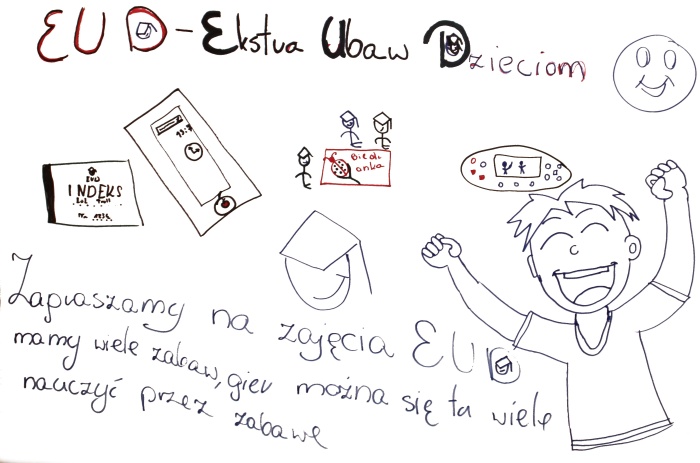 EUD - Ekstra Ubaw Dzieciom
13:7
EUD
INDEKS
Nr. 1234
Biedr
onka
Zapraszamy na zajęcia EUD
mamy wiele zabaw, gier można się tu wiele
nauczyć przez zabawę